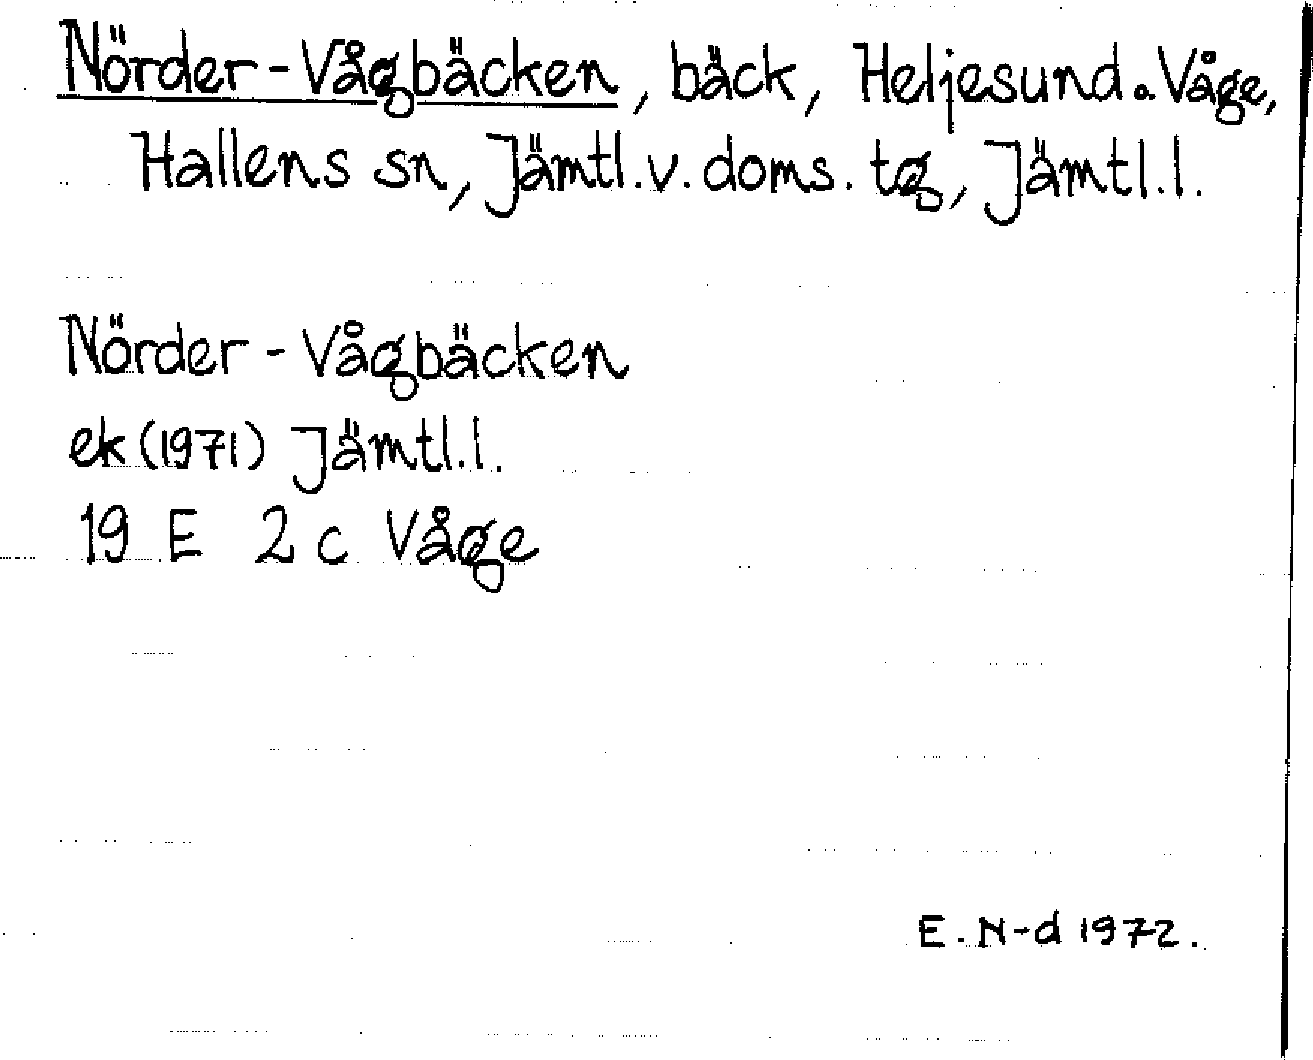 Nörder-Vågbäcken, bäck, Heljesund o. Våge,
Hallens sn, Jämtl.v.doms.tg, Jämtl.l.
Nörder-Vågbäcken
ek (1971) Jämtl.l.
19 E 2 c Våge
E. N-d 1972.